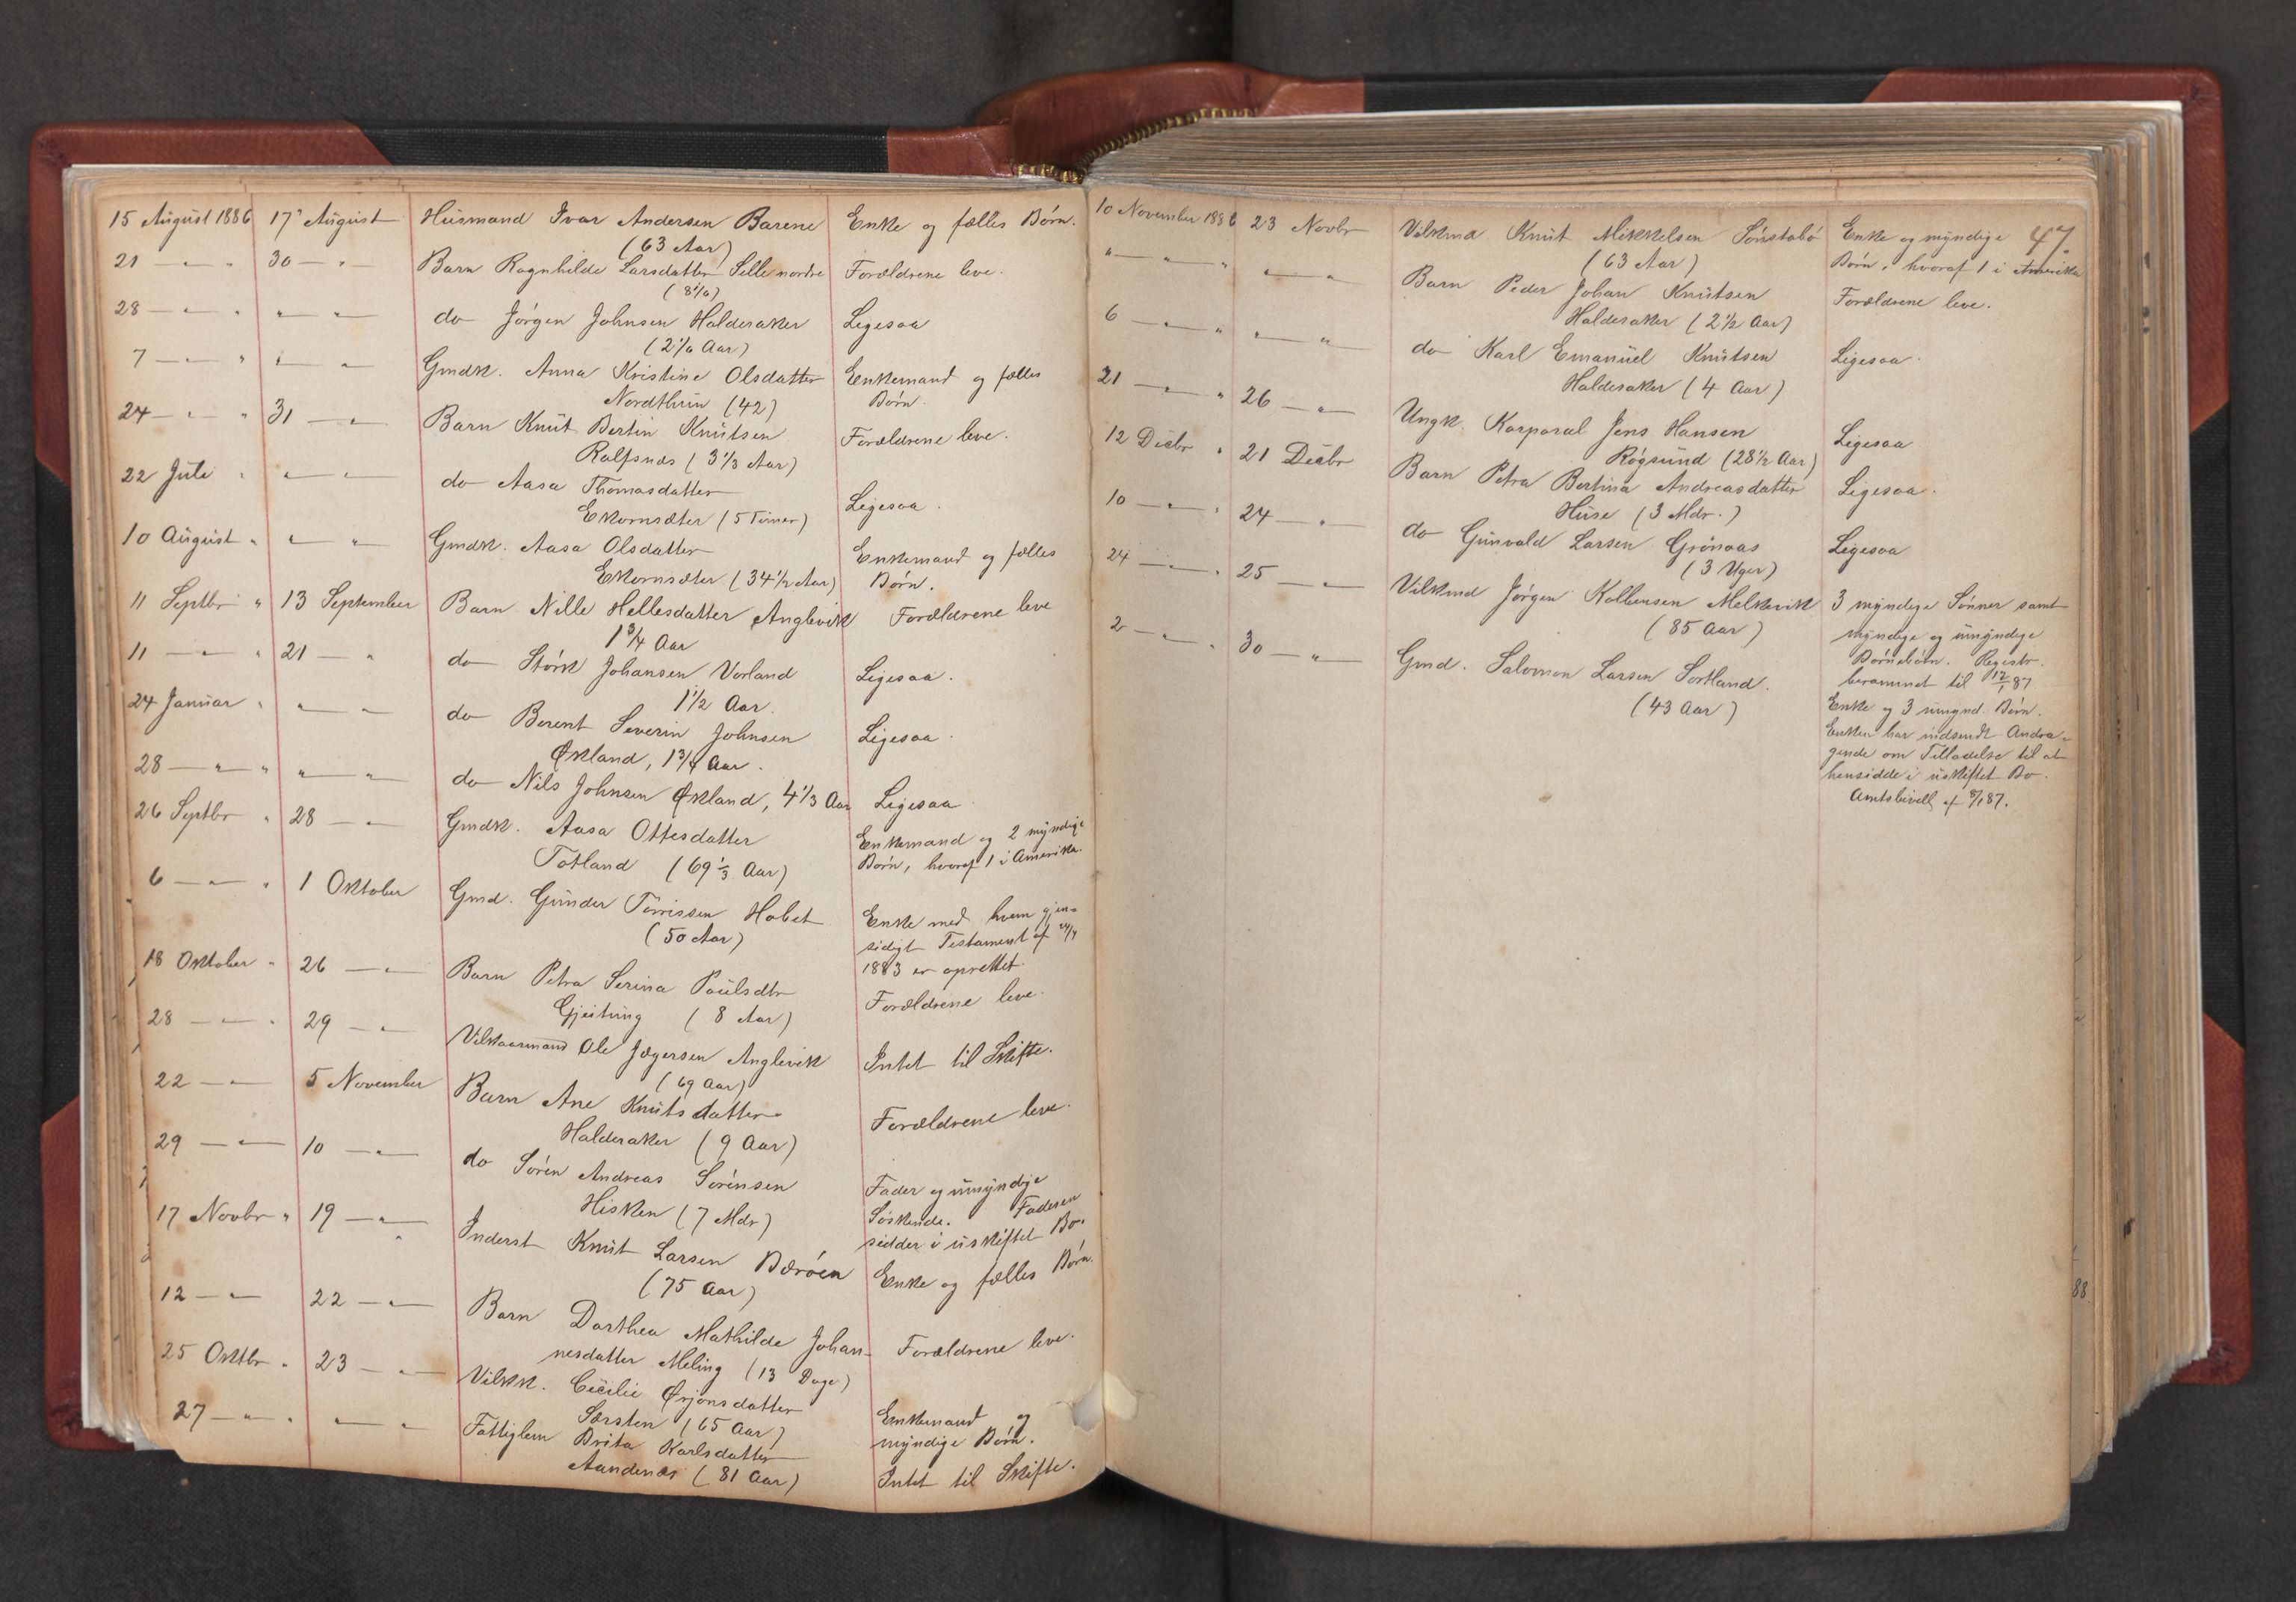 15 August 1886 17' August Husmand Ivar Andersen Barene Enke og fælles Børn.
(63 Aar)
21 — " — " 30 — " Barn Ragnhilde Larsdatter Selle nordre Forældrene leve.
(8 1/6)
28 — " — " " — " do Jørgen Johnsen Halderaker Ligesaa
(2 1/6 Aar)
7 — " — " " — " Gmdk. Anna Kristine Olsdatter Enkemand og fælles
Nordthun (42) Børn.
24 — " — " 31 — " — Barn Knut Bertin Knutsen Forældrene leve.
Rolfsnæs (3 1/3 Aar)
22 Juli " " — " — do Aasa Thomasdatter Ligesaa.
Ekornsæter (5 Timer)
10 August " " — " Gmdk. Aasa Olsdatter Enkemand og fælles
Ekornsæter (34 1/2 Aar) Børn.
11 Septbr " 13 September Barn Nille Hellesdatter Anglevik Forældrene leve
1 3/4 Aar
11 — " — " 21 — " do Størk Johansen Vorland Ligesaa.
1 1/2 Aar.
24 Januar " " — " do Berent Severin Johnsen Ligesaa.
Økland, 1 3/4 Aar.
28 — " — " " — " do Nils Johnsen Økland, 4 1/3 Aar Ligesaa
26 Septbr " 28 — " — Gmdk. Aasa Ottesdatter Enkemand og 2 myndige
Totland (69 1/3 Aar) Børn, hvoraf 1 i Amerika.
6 — " — " 1 Oktober Gmd. Gunder Tørrissen Habet Enke med hvem gjen-
(50 Aar) sidigt Testament af 24/4
1883 er oprettet.
18 Oktober " 26 — " — Barn Petra Serina Paulsdtr Forældrene leve.
Gjeitung (8 Aar)
28 — " — " 29 — " — Vilkaarmand Ole Jægersen Anglevik Intet til Skifte.
(69 Aar)
22 — " — 5 November Barn Ane Knutsdatter Forældrene leve.
Halderaker (9 Aar)
29 — " — 10 — " — do Søren Andreas Sørensen Fader og umyndige
Hisken (7 Mdr) Søskende. Faderen
sidder i uskiftet Bo.
17 Novbr " 19 — " — Inderst Knut Larsen Børøen Enke og fælles Børn.
(75 Aar)
12 — " — 22 — " — Barn Dorthea Mathilde Johan- Forældrene leve.
nesdatter Meling (13 Dage)
25 Oktbr " 23 — " — Vilkk. Cicilie Ørjansdatter Enkemand og
Særsten (65 Aar) myndige Børn.
27 — " — " — " Fattiglem Brita Karlsdatter Intet til Skifte.
Aandenæs (81 Aar)
47
10 November 1886 23 Novbr Vilkmd. Knut Mikkelsen Sønstabø Enke og myndige
(63 Aar) Børn, hvoraf 1 i Amerika
" — " — " " — " — Barn Peder Johan Knutsen Forældrene leve.
Halderaker (2 1/2 Aar)
6 — " — " " — " — do Karl Emanuel Knutsen Ligesaa.
Halderaker (4 Aar)
21 — " — " 26 — " — Ungk. Korporal Jens Hansen Ligesaa
Røgsund (28 1/2 Aar)
12 Decbr " 21 Decbr Barn Petra Bertina Andreasdatter Ligesaa.
Huse (3 Mdr.)
10 — " — " 24 — " — do Gunvald Larsen Grønaas Ligesaa
(3 Uger)
24 — " — " 25 — " — Vilkmd Jørgen Kolbensen Melkevik 3 myndige Sønner samt
(85 Aar) myndige og umyndige
Børnebørn. Registr.
berammet til 12/1 87
2 — " — " 30 — " — Gmd. Salomon Larsen Sortland. Enke og 3 umynd. Børn.
(43 Aar) Enken har indsendt Andra-
gende om Tilladelse til at
hensidde i uskiftet Bo.
Amtsbevill. af 8/1 87.
88